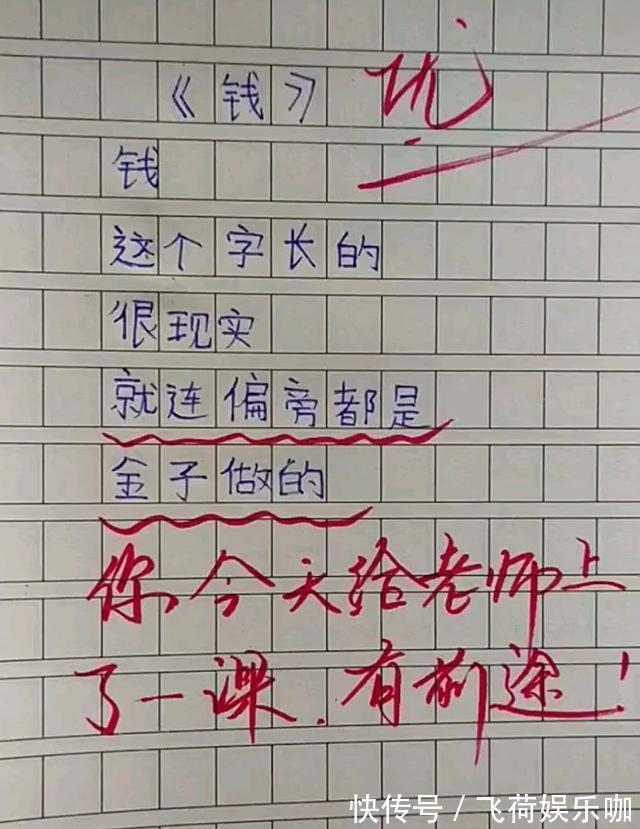 《钱》 优
钱
这个字长的
很现实
就连偏旁都是
金子做的
你今天给老师上
了一课.有前途!
快传号/飞荷娱乐咖